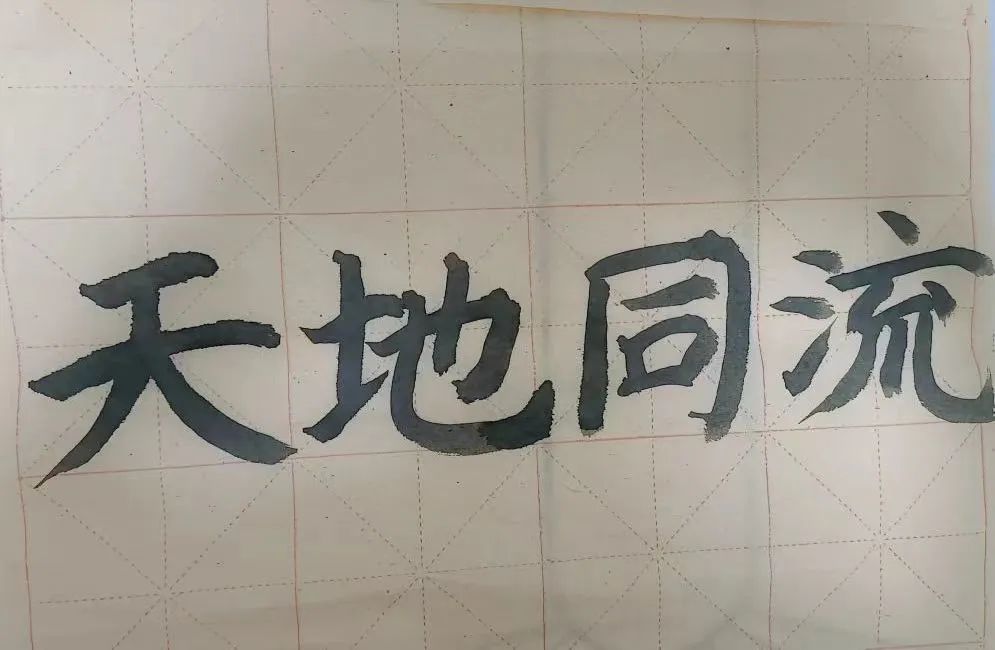 天地同流